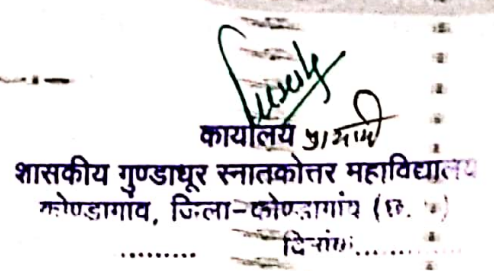 कार्यालय प्राचार्य
शासकीय गुण्डाधूर स्नातकोत्तर महाविद्यालय
कोण्डागांव, जिला-कोण्डागांव (छ. ग.)
.......... दिनांक..............